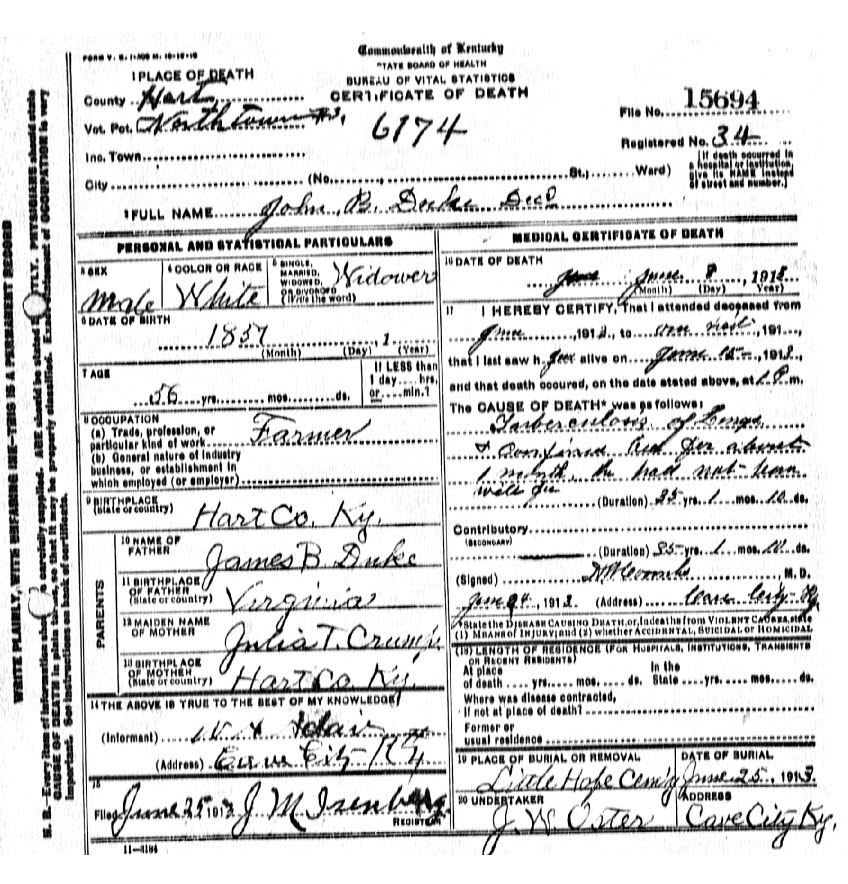 FORM V. S. 1-
Commonwealth of Kentucky
STATE BOARD OF HEALTH
BUREAU OF VITAL STATISTICS
CERTIFICATE OF DEATH
1 PLACE OF DEATH
County Hart
Vot. Pct. Northtown
6174
File No. 15694
Registered No. 34
Inc. Town
City (No. St.; Ward)
[If death occurred in a hospital or institution, give its NAME instead of street and number.]
2 FULL NAME John B. Duke Decd
PERSONAL AND STATISTICAL PARTICULARS
3 SEX Male
4 COLOR OR RACE White
5 SINGLE, MARRIED, WIDOWED, OR DIVORCED (Write the word) Widower
6 DATE OF BIRTH
1857, 1
(Month) (Day) (Year)
7 AGE
56 yrs. mos. ds.
If LESS than 1 day hrs. or min.?
8 OCCUPATION
(a) Trade, profession, or particular kind of work Farmer
(b) General nature of industry business, or establishment in which employed (or employer)
9 BIRTHPLACE (State or country) Hart Co. Ky.
PARENTS
10 NAME OF FATHER James B Duke
11 BIRTHPLACE OF FATHER (State or country) Virginia
12 MAIDEN NAME OF MOTHER Julia T. Crump
13 BIRTHPLACE OF MOTHER (State or country) Hart Co Ky.
14 THE ABOVE IS TRUE TO THE BEST OF MY KNOWLEDGE
(Informant) Adair
(Address) Cave City
15
Filed June 25, 1913 J M Isenberg
REGISTRAR
11-3184
MEDICAL CERTIFICATE OF DEATH
16 DATE OF DEATH
June 191
(Month) (Day) Year
17 I HEREBY CERTIFY, That I attended deceased from
June, 1913, to, 191
that I last saw h alive on June 15, 1913,
and that death occured, on the date stated above, at 1 P. m.
The CAUSE OF DEATH* was as follows:
Tuberculosis of Lungs
& confined him for about
1 month, he had not been
well for
(Duration) 25 yrs. 1 mos. 10 ds.
Contributory
(SECONDARY)
(Duration) 25 yrs. 1 mos. 10 ds.
(Signed) M. D.
June 24, 1913 (Address) Cave City Ky
*State the DISEASE CAUSING DEATH, or, in deaths from VIOLENT CAUSES, state
(1) MEANS of INJURY; and (2) whether ACCIDENTAL, SUICIDAL or HOMICIDAL
(18) LENGTH OF RESIDENCE (FOR HOSPITALS, INSTITUTIONS, TRANSIENTS OR RECENT RESIDENTS)
At place of death yrs. mos. ds. In the State yrs. mos. ds.
Where was disease contracted, if not at place of death?
Former or usual residence
19 PLACE OF BURIAL OR REMOVAL Little Hope Cem'y
DATE OF BURIAL June 25, 1913
20 UNDERTAKER J. W Oster
ADDRESS Cave City Ky.
WRITE PLAINLY, WITH UNFADING INK—THIS IS A PERMANENT RECORD
N. B.—Every item of information carefully supplied. AGE should be stated. PHYSICIANS should state
CAUSE OF DEATH in plain so that it may be properly classified. statement of OCCUPATION is very
important. See instructions on back of certificate.